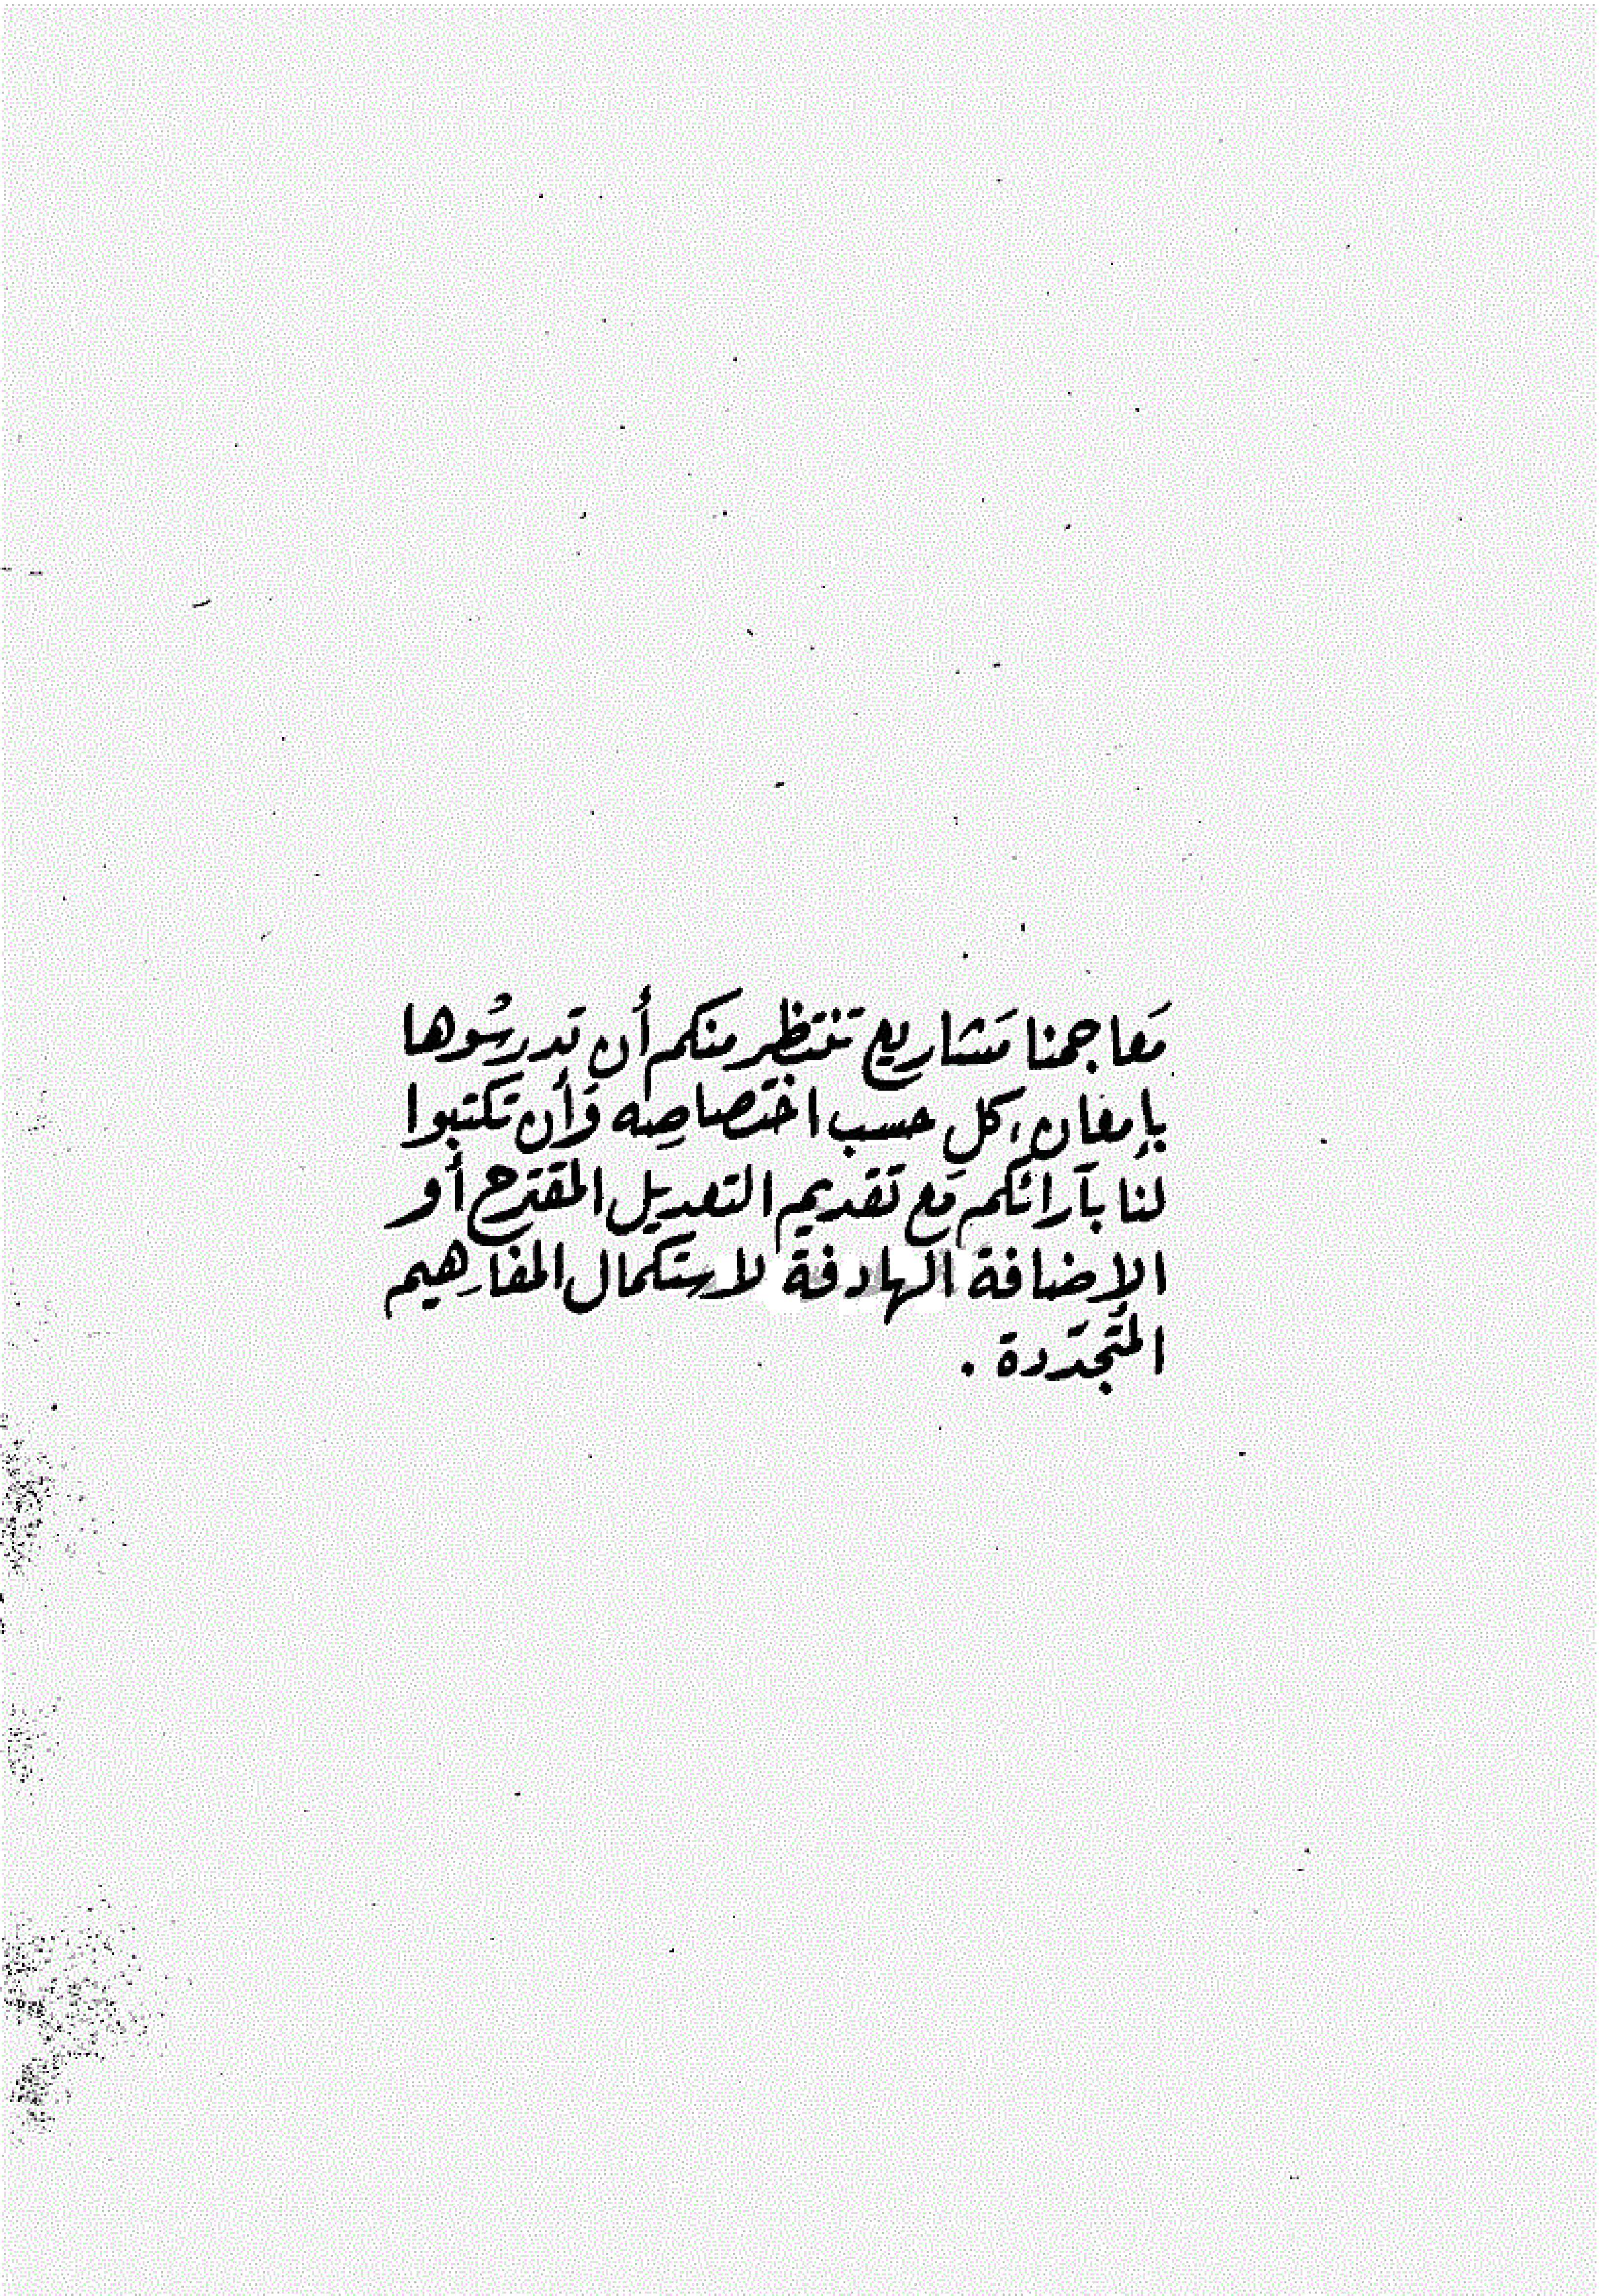 مَعاجمنا مَشاريع تنتظر منكم أن تدرسُوها
بإمعان، كل حسب اختصاصِه وَأن تكتبوا
لنا بآرائكم مَع تقديم التعديل المقترح أو
الإضافة الهادفة لاستكمال المفاهِيم
المتجدّدة .